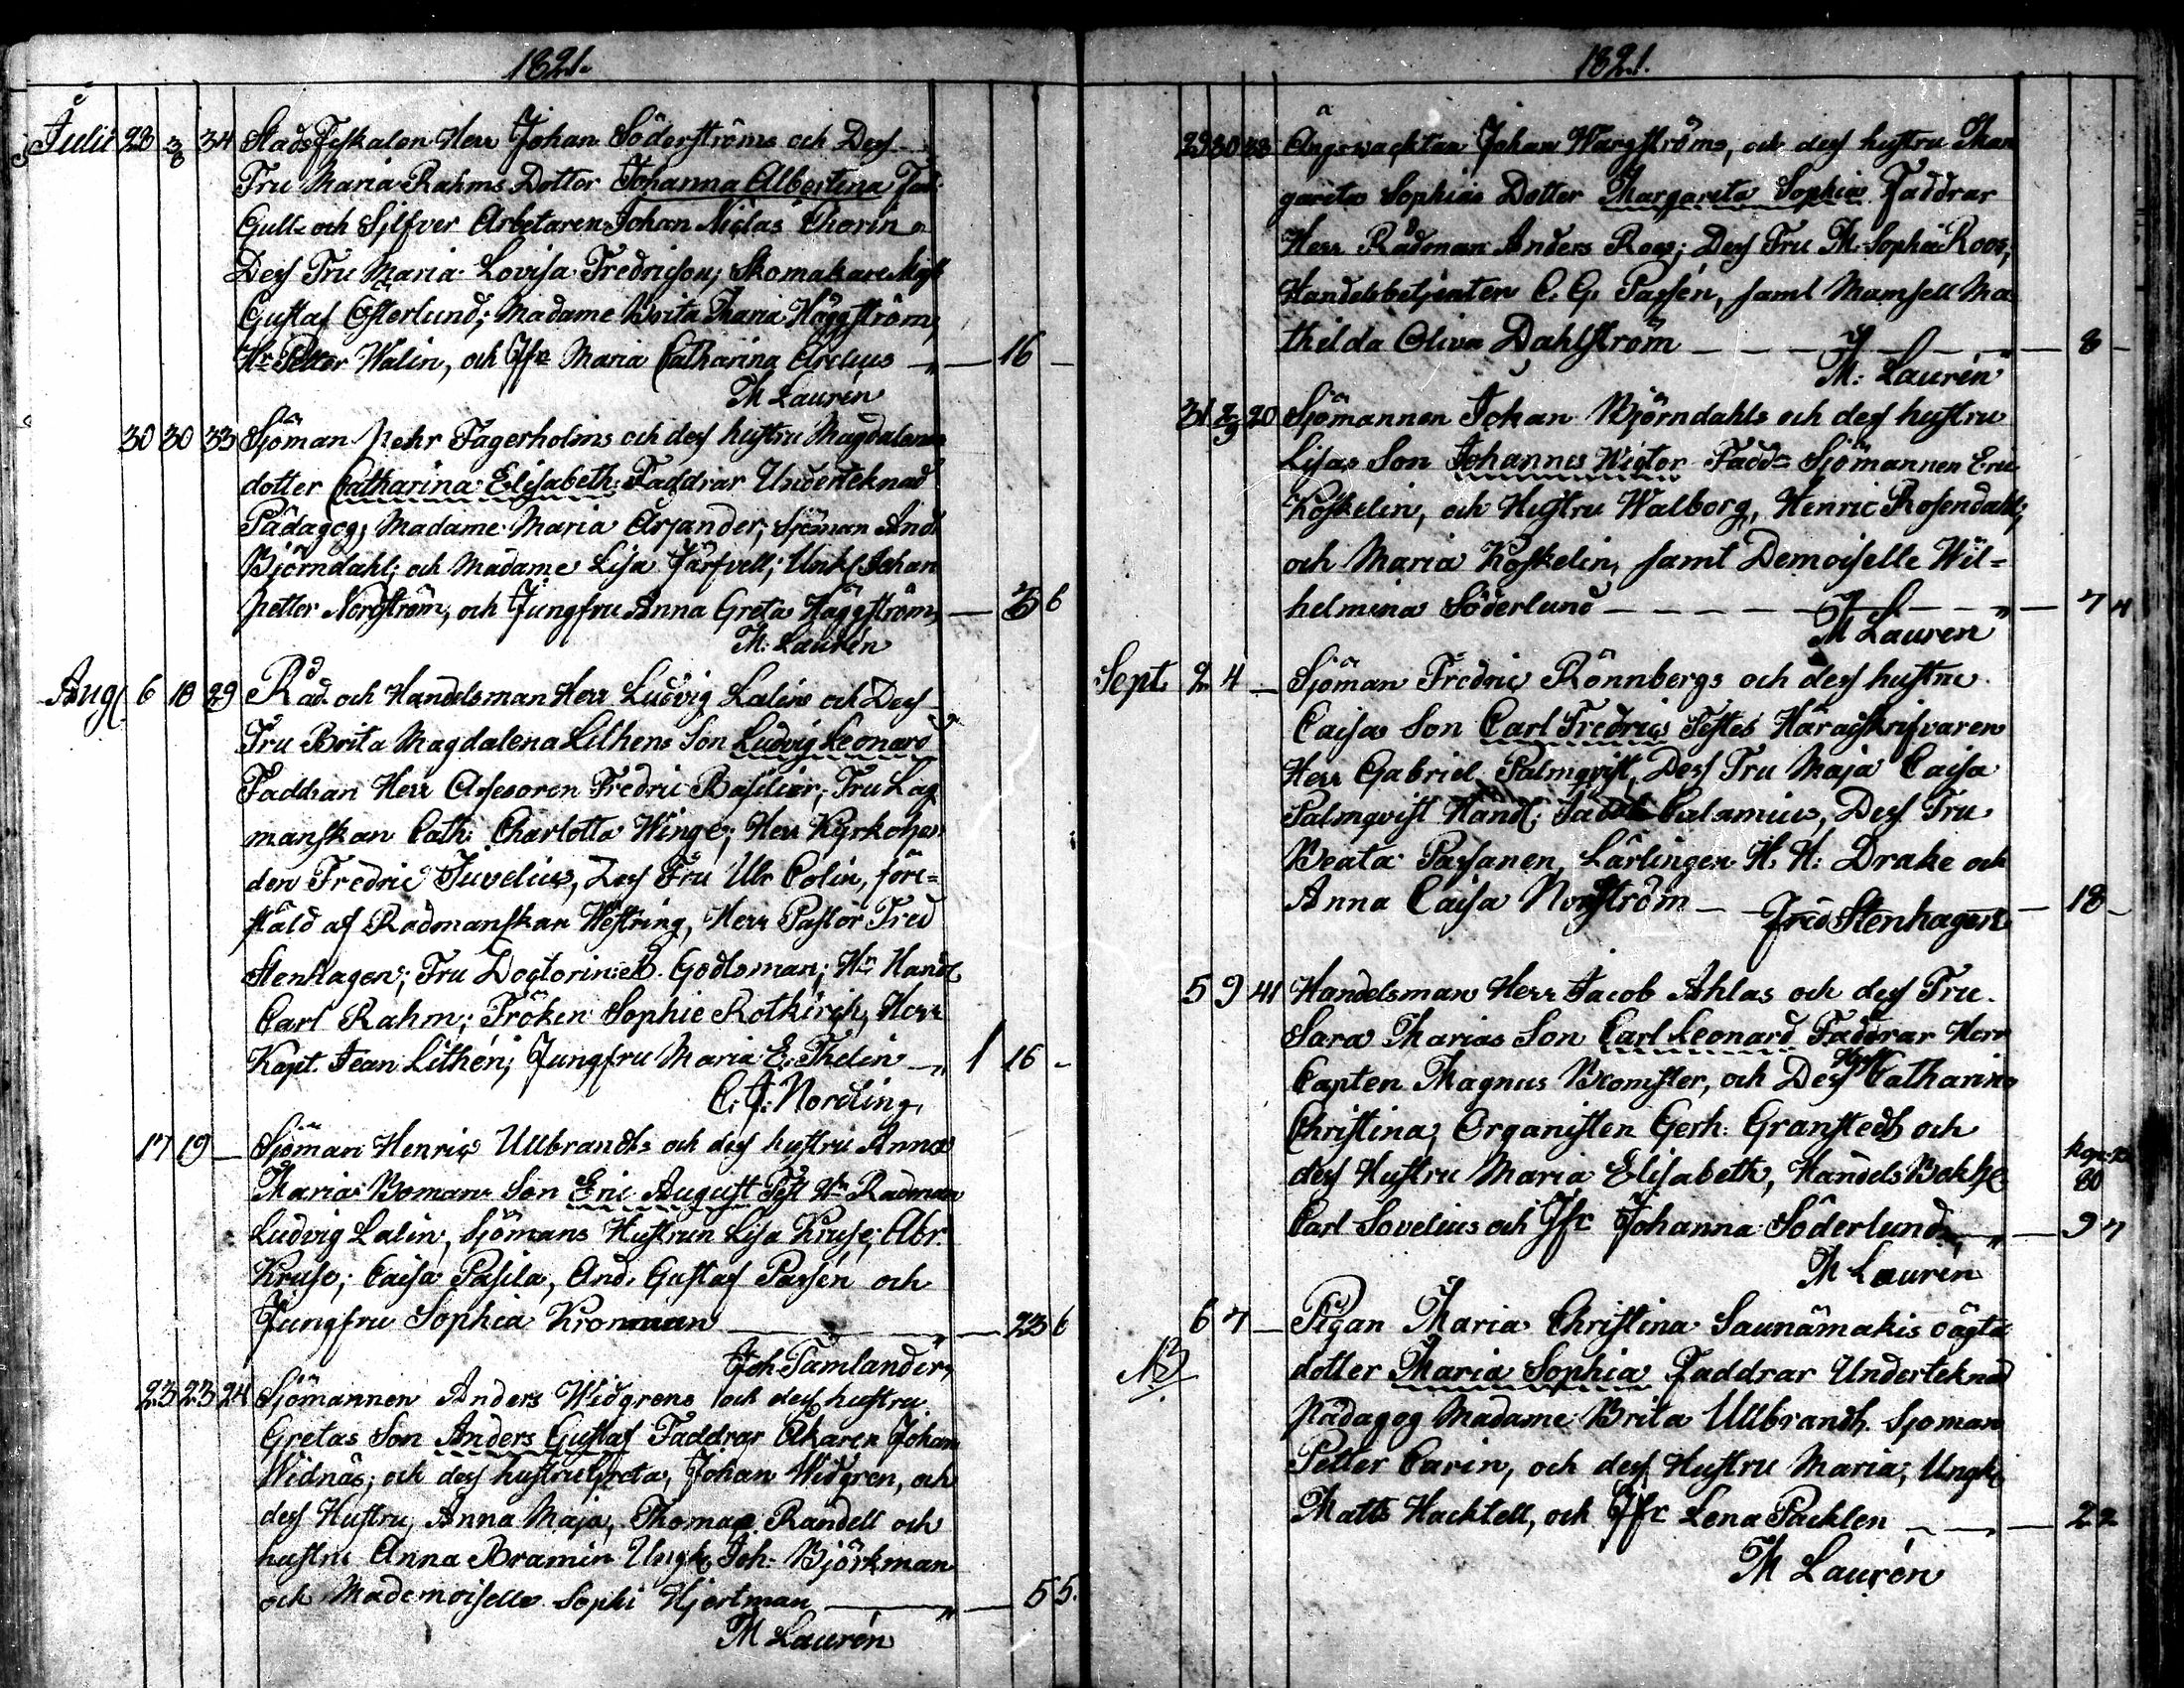 1821.
Julii 28 3/8 34 StadsFiskalen Herr Johan Söderströms och Dess
Fru Maria Rahms Dotter Johanna Albertina Fad:
Gull- och Silfver Arbetaren Johan Niclas Thorin
Dess Fru Maria Lovisa Fredricson; Skomakare
Gustaf Österlund; Madame Brita Maria Häggström,
Hr Petter Walin, och Jfr Maria Catharina Arelius — 16 —
M Laurén
30 30 33 Sjöman Pehr Fagerholms och dess hustru Magdalenas
dotter Catharina Elisabeth Faddrar Underteknad
Pädagog, Madame Maria Arjander; Sjöman And:
Björndahl; och Madame Lisa Järfvell; Ungk Johan
Petter Nordström, och Jungfru Anna Greta Häggström, — 6
M: Laurén
Aug 6 18 29 Råd- och Handelsman Herr Ludvig Lalins och Dess
Fru Brita Magdalena Lithens Son Ludvig Leonard
Faddrar Herr Assesoren Fredric Basilier; Fru Lag
manskan Cath: Charlotta Winge; Herr Kyrkoher
den Fredric Juvelius, Dess Fru Ulr Colin, före=
stäld af Rådmanskan Westring, Herr Pastor Fred
Stenhagen; Fru Doctorinnan Godtsman; Hr Handl
Carl Rahm; Fröken Sophie Rotkirch, Herr
Kapt. Jean Lithén; Jungfru Maria E. Thelin — 1 16 —
C. J. Nordling,
17 19 — Sjöman Henric Ullbrandts och dess hustru Anna
Maria Bomans Son Eric August Test Hr Rådman
Ludvig Lalin, Sjömans Hustrun Lisa Kruse; Abr.
Kruse; Caisa Pasila, And. Gustaf Passén och
Jungfru Sophia Kronman — 23 6
Joh Tamlander,
23 23 24 Sjömannen Anders Widgrens och dess hustru
Gretas Son Anders Gustaf Faddrar Åkaren Johan
Widnäs; och dess hustru Greta, Johan Widgren, och
dess Hustru, Anna Maja, Thomas Randell och
hustru Anna Bramin Ungk Joh: Björkman
och Mademoiselle Sophi Hjertman — 5 5.
M Laurén
1821.
29 30 23 Ångswacktan Johan Wargströms, och dess hustru Mar
gareta Sophias Dotter Margareta Sophia Faddrar
Herr Rådman Anders Roos; Dess Fru M. Sophia Roos;
Handelsbetjenten C. G. Passén, samt Mamsell Ma
thilda Oliva Dahlström — 8 —
M: Laurén
31 2/9 20 Sjömannen Johan Björndahls och dess hustru
Lisas Son Johannes Wictor Faddr Sjömannen Eric
Koskelin, och Hustru Walborg, Henric Rosendahl;
och Maria Koskelin, samt Demoiselle Wil=
helmina Söderlund — 7
M Lauren
Sept. 2 4 — Sjöman Fredric Rönnbergs och dess hustru
Caisa Son Carl Fredric Testes Häradskrifvaren
Herr Gabriel Palmqvist, Dess Fru Maja Caisa
Palmqvist Handl: Calamius, Dess Fru
Beata Passanen, Lärlingen H. H: Drake och
Anna Caisa Norström — 18 —
Fred Stenhagen
5 9 41 Handelsman Herr Jacob Ahlas och dess Fru
Sara Marias Son Carl Leonard Faddrar Herr
Capten Magnus Blomster, och Dess Catharina
Christina; Organisten Gerh: Granstedt och
dess Hustru Maria Elisabeth, Handels Bokh 80
Carl Sovelius och Jfr Johanna Söderlund — 9 7
M Lauren
6 7 — Pigan Maria Christina Saunämakis oägta
NB dotter Maria Sophia Faddrar Underteknad
Pädagog Madame Brita Ullbrandt Sjoman
Petter Carin, och dess Hustru Maria; Ungk
Matts Hacktell, och Jfr Lena Packlen — 2 2
M Laurén